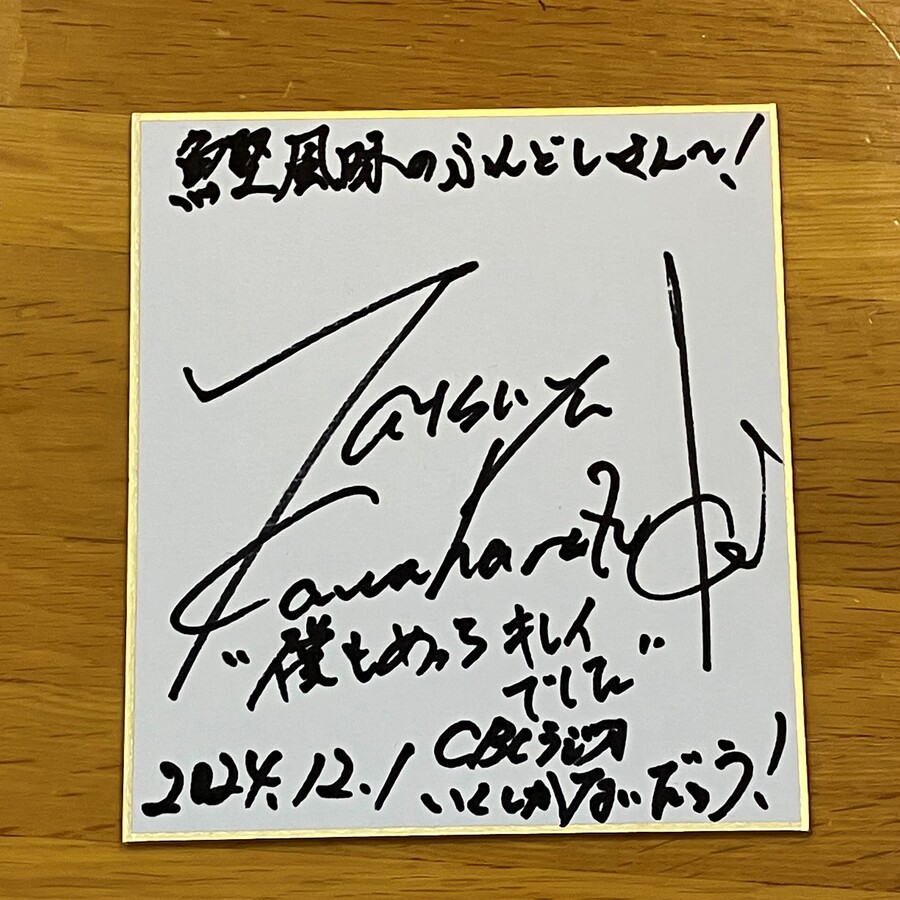 鰹風味のふんどしさん〜!
Tatsuya
Kawahara
"僕もめっちゃキレイ
でした"
2024.12.1
CBCラジオ
いくしかないだろう!